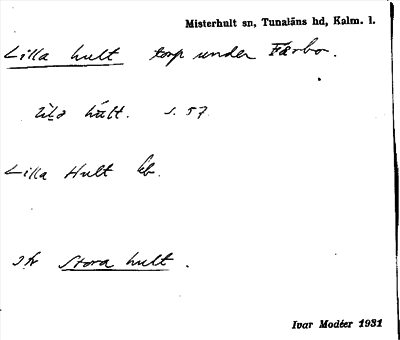 Misterhult sn, Tunaläns hd, Kalm. l.
Lilla hult torp under Fårbo.
hult. s. 57
Lilla Hult kb.
Stora hult.
Ivar Modéer 1931